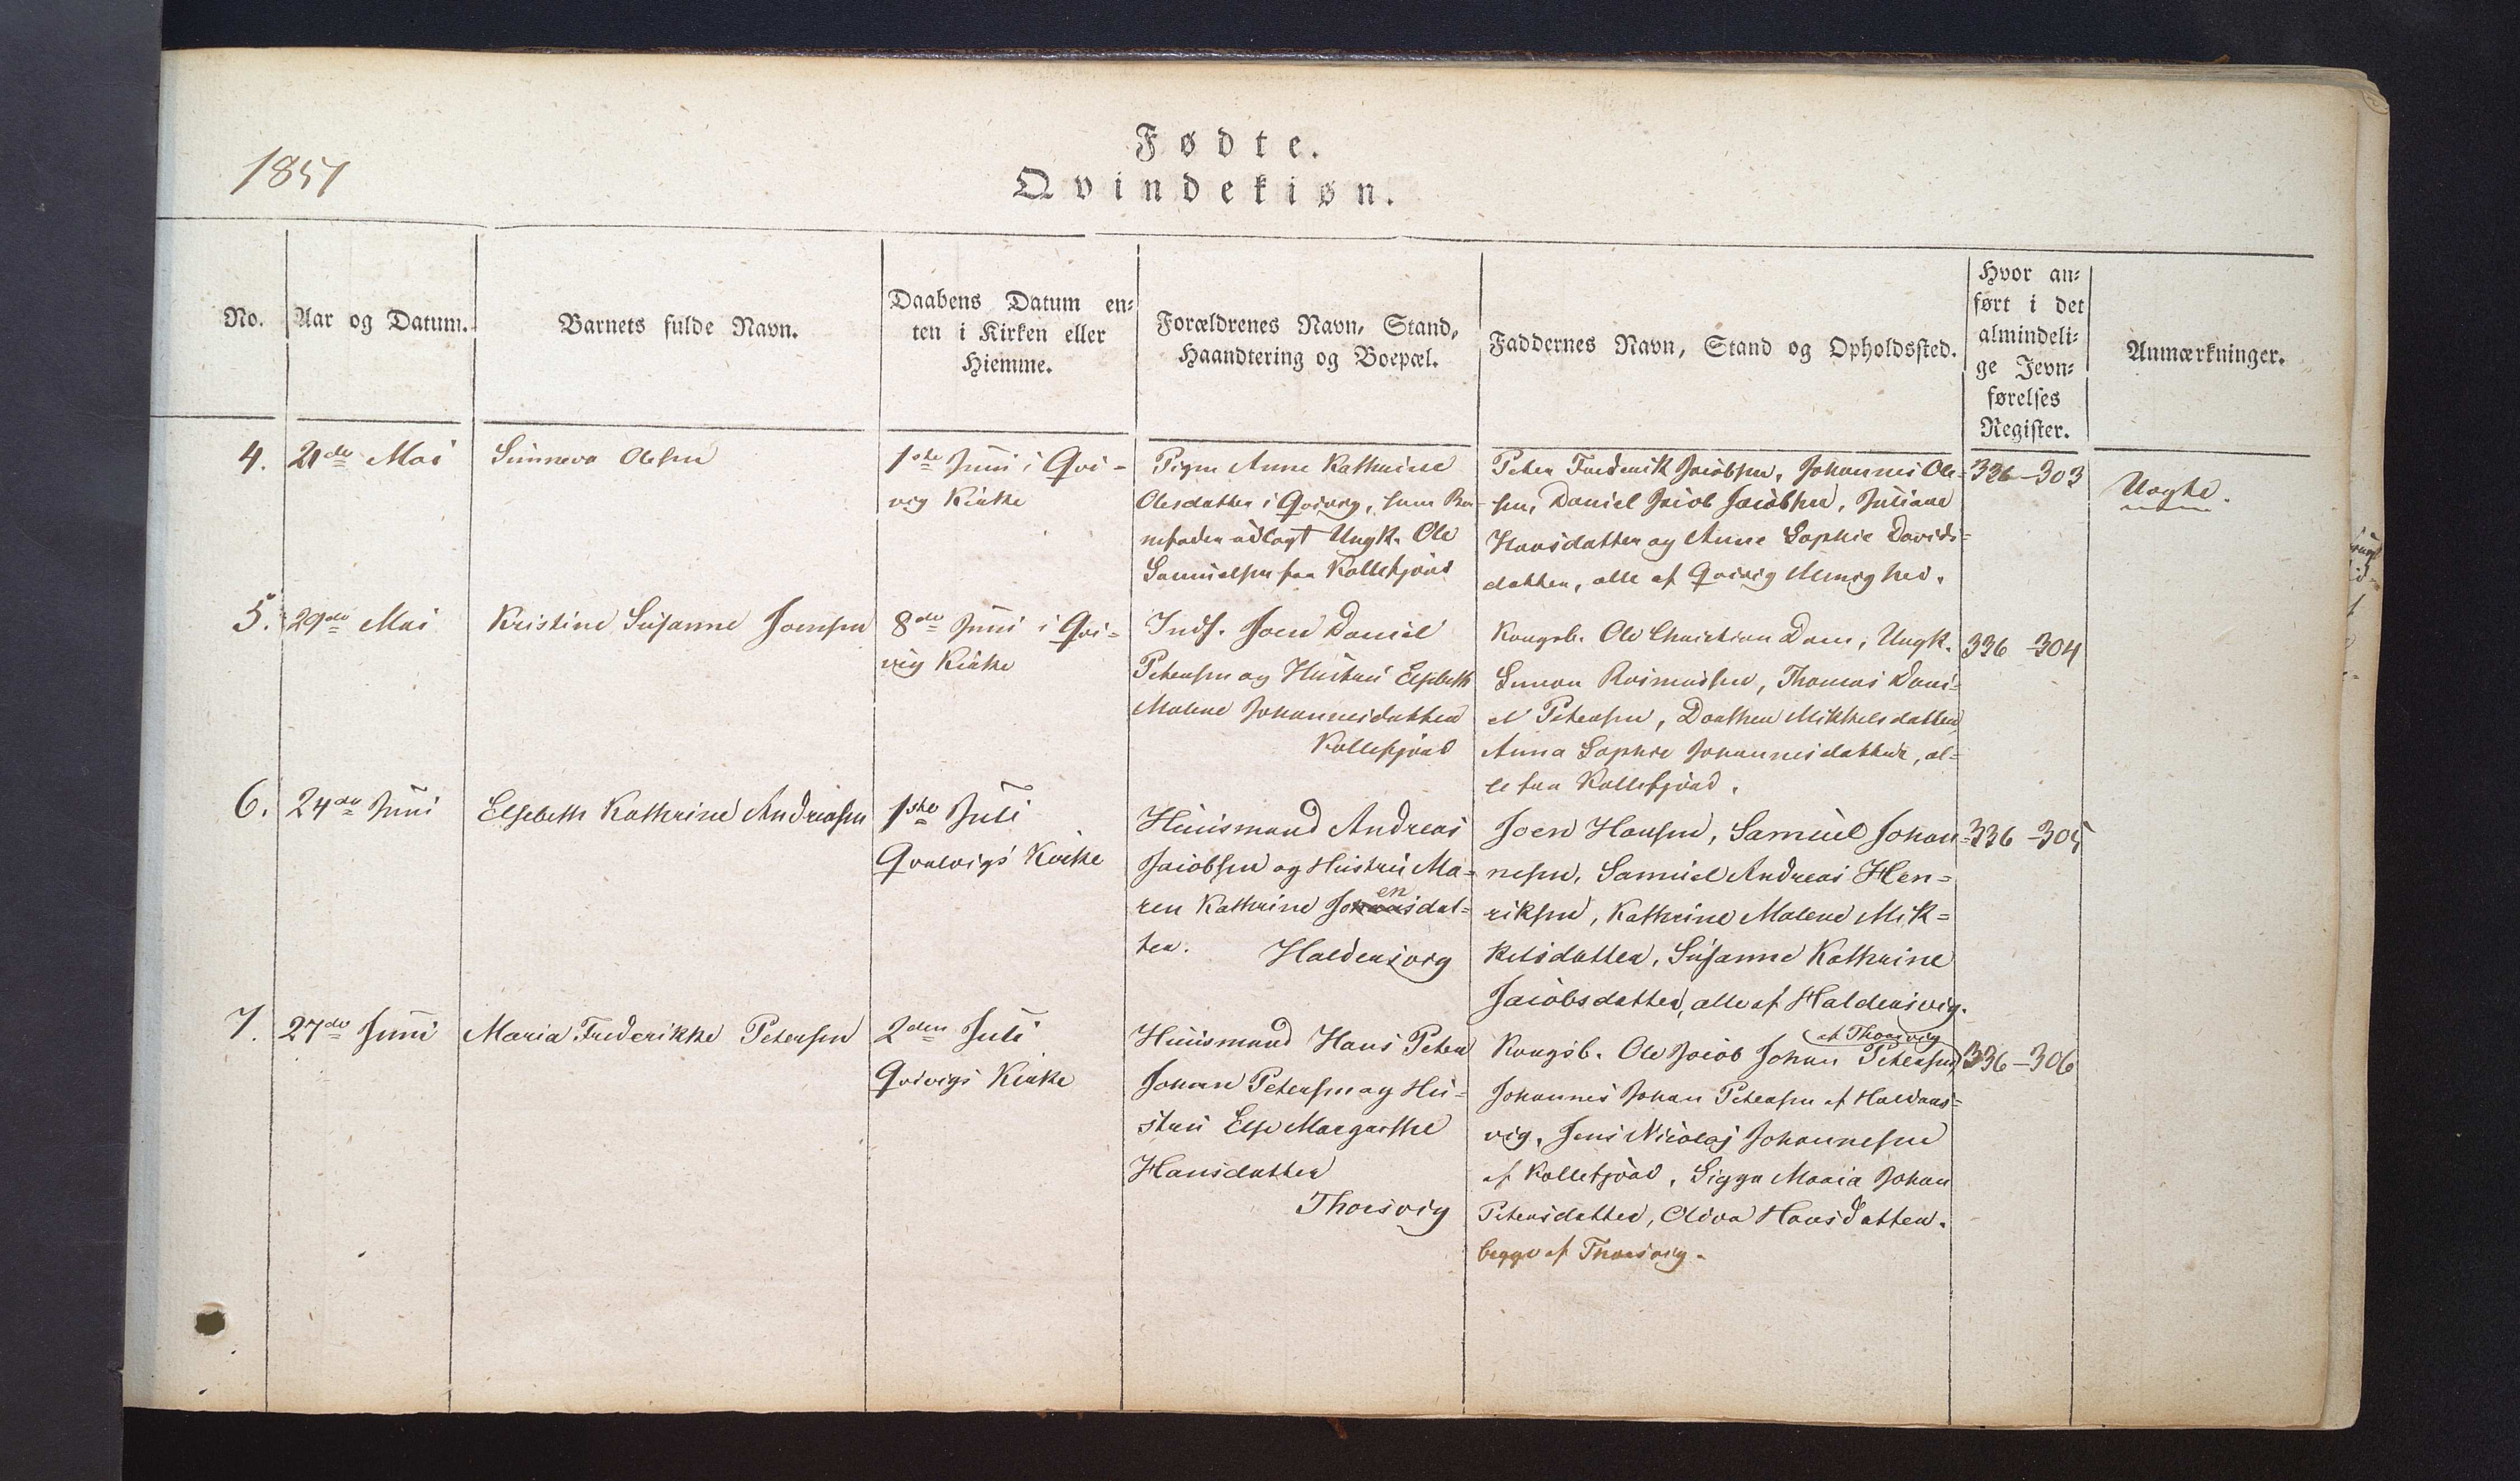 Fødte.
1851
Qvindekiøn.
No.
Aar og Datum.
Barnets fulde Navn.
Daabens Datum en-
ten i Kirken eller
Hiemme.
Forældrenes Navn, Stand,
Haandtering og Boepæl.
Faddernes Navn, Stand og Opholdssted.
Hvor an-
ført i det
almindeli-
ge Jevn-
førelses
Register.
Anmærkninger.
4.
21de Mai
Sunneva Olesen
1ste Juni i Qvi-
vig Kirke
Pigen Anne Kathrine
Olesdatter i Qvivig, som Bar-
nefader udlagt Ungk. Ole
Samuelsen fra Kollefjord
Peter Frederik Jacobsen, Johannes Ole-
sen, Daniel Jacob Jacobsen, Juliane
Hansdatter og Anne Sophie Davids-
datter, alle af Qvivig Menighed.
336-303
Uægte.
5.
29de Mai
Kristine Susanne Joensen
8de Juni i Qvi-
vig Kirke
Inds. Joen Daniel
Petersen og Hustru Elsebeth
Malene Johannesdatter
Kollefjord
Kongsb. Ole Christian Dam, Ungk.
Simon Rasmussen, Thomas Dani-
el Petersen, Dorthea Mikkelsdatter,
Anna Sophie Johannesdatter, al-
le fra Kollefjord.
336-304
6.
24de Juni
Elsebeth Kathrine Andreasen
1ste Juli
Qvalvigs Kirke
Huusmand Andreas
Jacobsen og Hustru Ma-
en
ren Kathrine Johansdat-
ter.
Haldersvig
Joen Hansen, Samuel Johan-
nesen, Samuel Andreas Hen-
riksen, Kathrine Malene Mik-
kelsdatter, Susanne Kathrine
Jacobsdatter, alle af Haldersvig.
336-305
7.
27de Juni
Maria Frederikke Petersen
2den Juli
Qvivigs Kirke
Huusmand Hans Peter
Johan Petersen og Hu-
stru Else Margarthe
Hansdatter
Thorsvig
af Thorsvig
Kongsb. Ole Jacob Johan Petersen,
Johannes Johan Petersen af Haldars-
vig, Jens Nicolaj Johannesen
af Kollefjord, Sigga Maria Johan
Petersdatter, Oliva Hansdatter.
begge af Thorsvig.
336-306